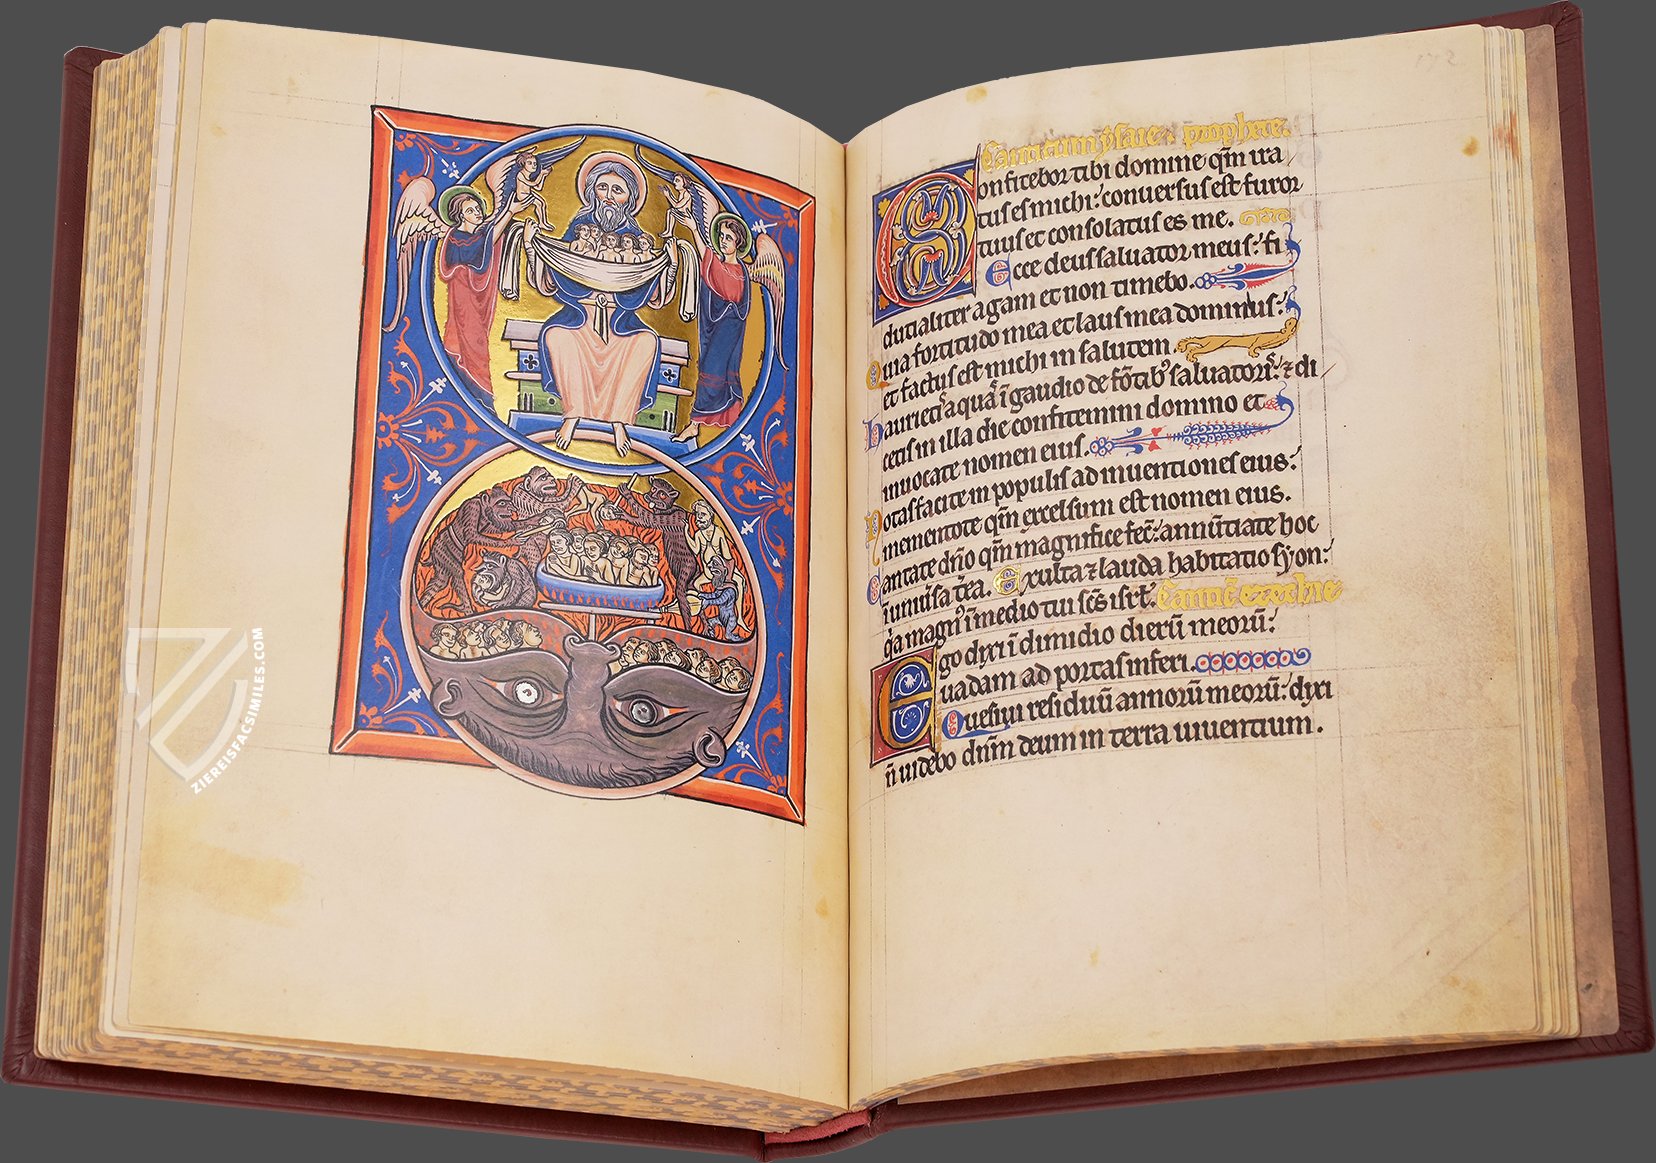 ZIEREISFACSIMILES.COM
172
Canticum ysaie prophete.
Confitebor tibi domine qm̄ ira
tus es michi: conuersus est furor
tuus et consolatus es me.
Ecce deus saluator meus: fi
ducialiter agam et non timebo.
Quia fortitudo mea et laus mea dominus:
et factus est michi in salutem.
Haurietis aquā ī gaudio de fōtib' saluatoris: ⁊ di
cetis in illa die confitemini domino et
inuocate nomen eius.
Notas facite in populis ad inuentiones eius:
mementote qm̄ excelsum est nomen eius.
Cantate dño qm̄ magnifice fec̄: annūtiate hoc
ī uniūsa t̄ra. Exulta ⁊ lauda habitatio syon:
q̄a magn' ī medio tui sc̄s isrl̄. Cantic̄ ezechie
Ego dixi ī dimidio dierū meorū:
uadam ad portas inferi.
Quesiui residuū annorū meorū: dixi
n̄ uidebo dn̄m deum in terra uiuentium.